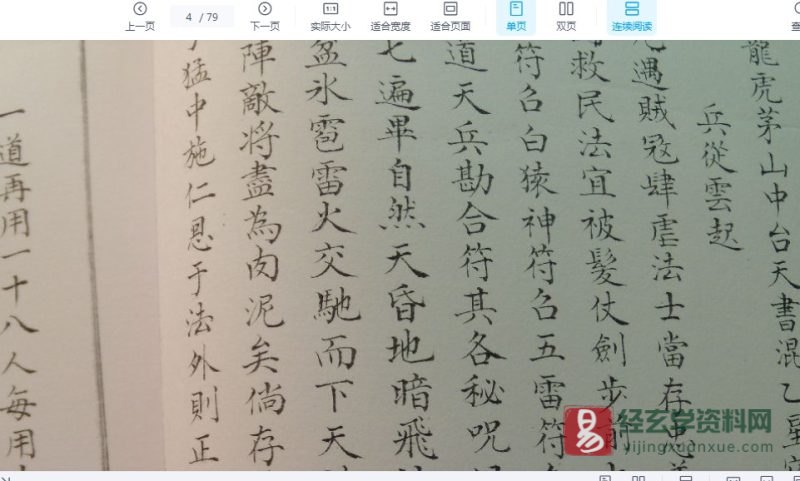 上一页
4 / 79
下一页
实际大小
适合宽度
适合页面
单页
双页
连续阅读
查
龍虎茅山中台天書混乙星
兵從雲起
遇賊寇肆虐法士當存
救民法宜被髮仗劍步前
符召白猿神符召五雷符
道天兵勘合符其各秘咒
七遍畢自然天昏地暗飛
盆氷雹雷火交馳而下天
陣敵將盡為肉泥矣倘存
猛中施仁恩于法外則正
一道再用一十八人每用
易
经玄学资料网
yijingxuanxue.com